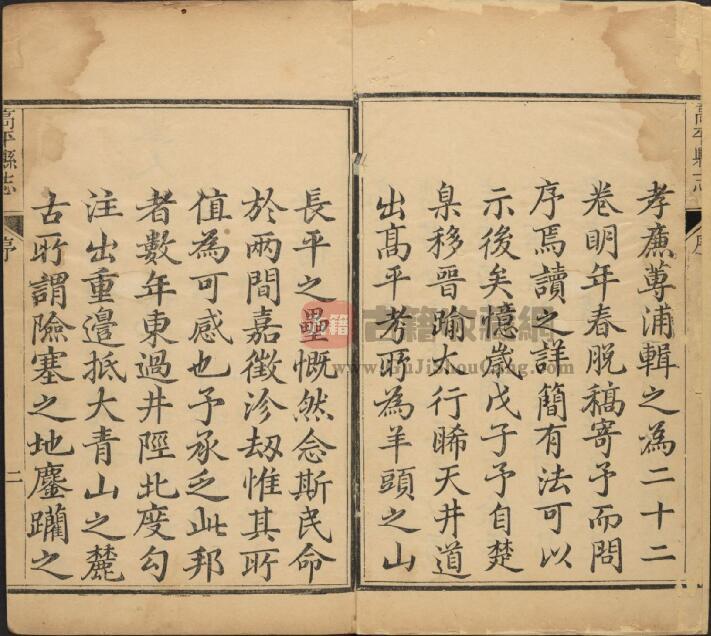 高平縣志
序
孝廉蓴浦輯之為二十二
卷明年春脫稿寄予而問
序焉讀之詳簡有法可以
示後矣憶歲戊子予自楚
臬移晉踰大行睎天井道
出髙平考所為羊頭之山
長平之壘慨然念斯民命
於兩間嘉徵沴劫惟其所
值為可感也予承乏此邦
者數年東過井陘北度勾
注出重邉抵大青山之麓
古所謂險塞之地鏖躪之
高平縣志
序
二
古籍收藏網
www.GuJiShouCang.com